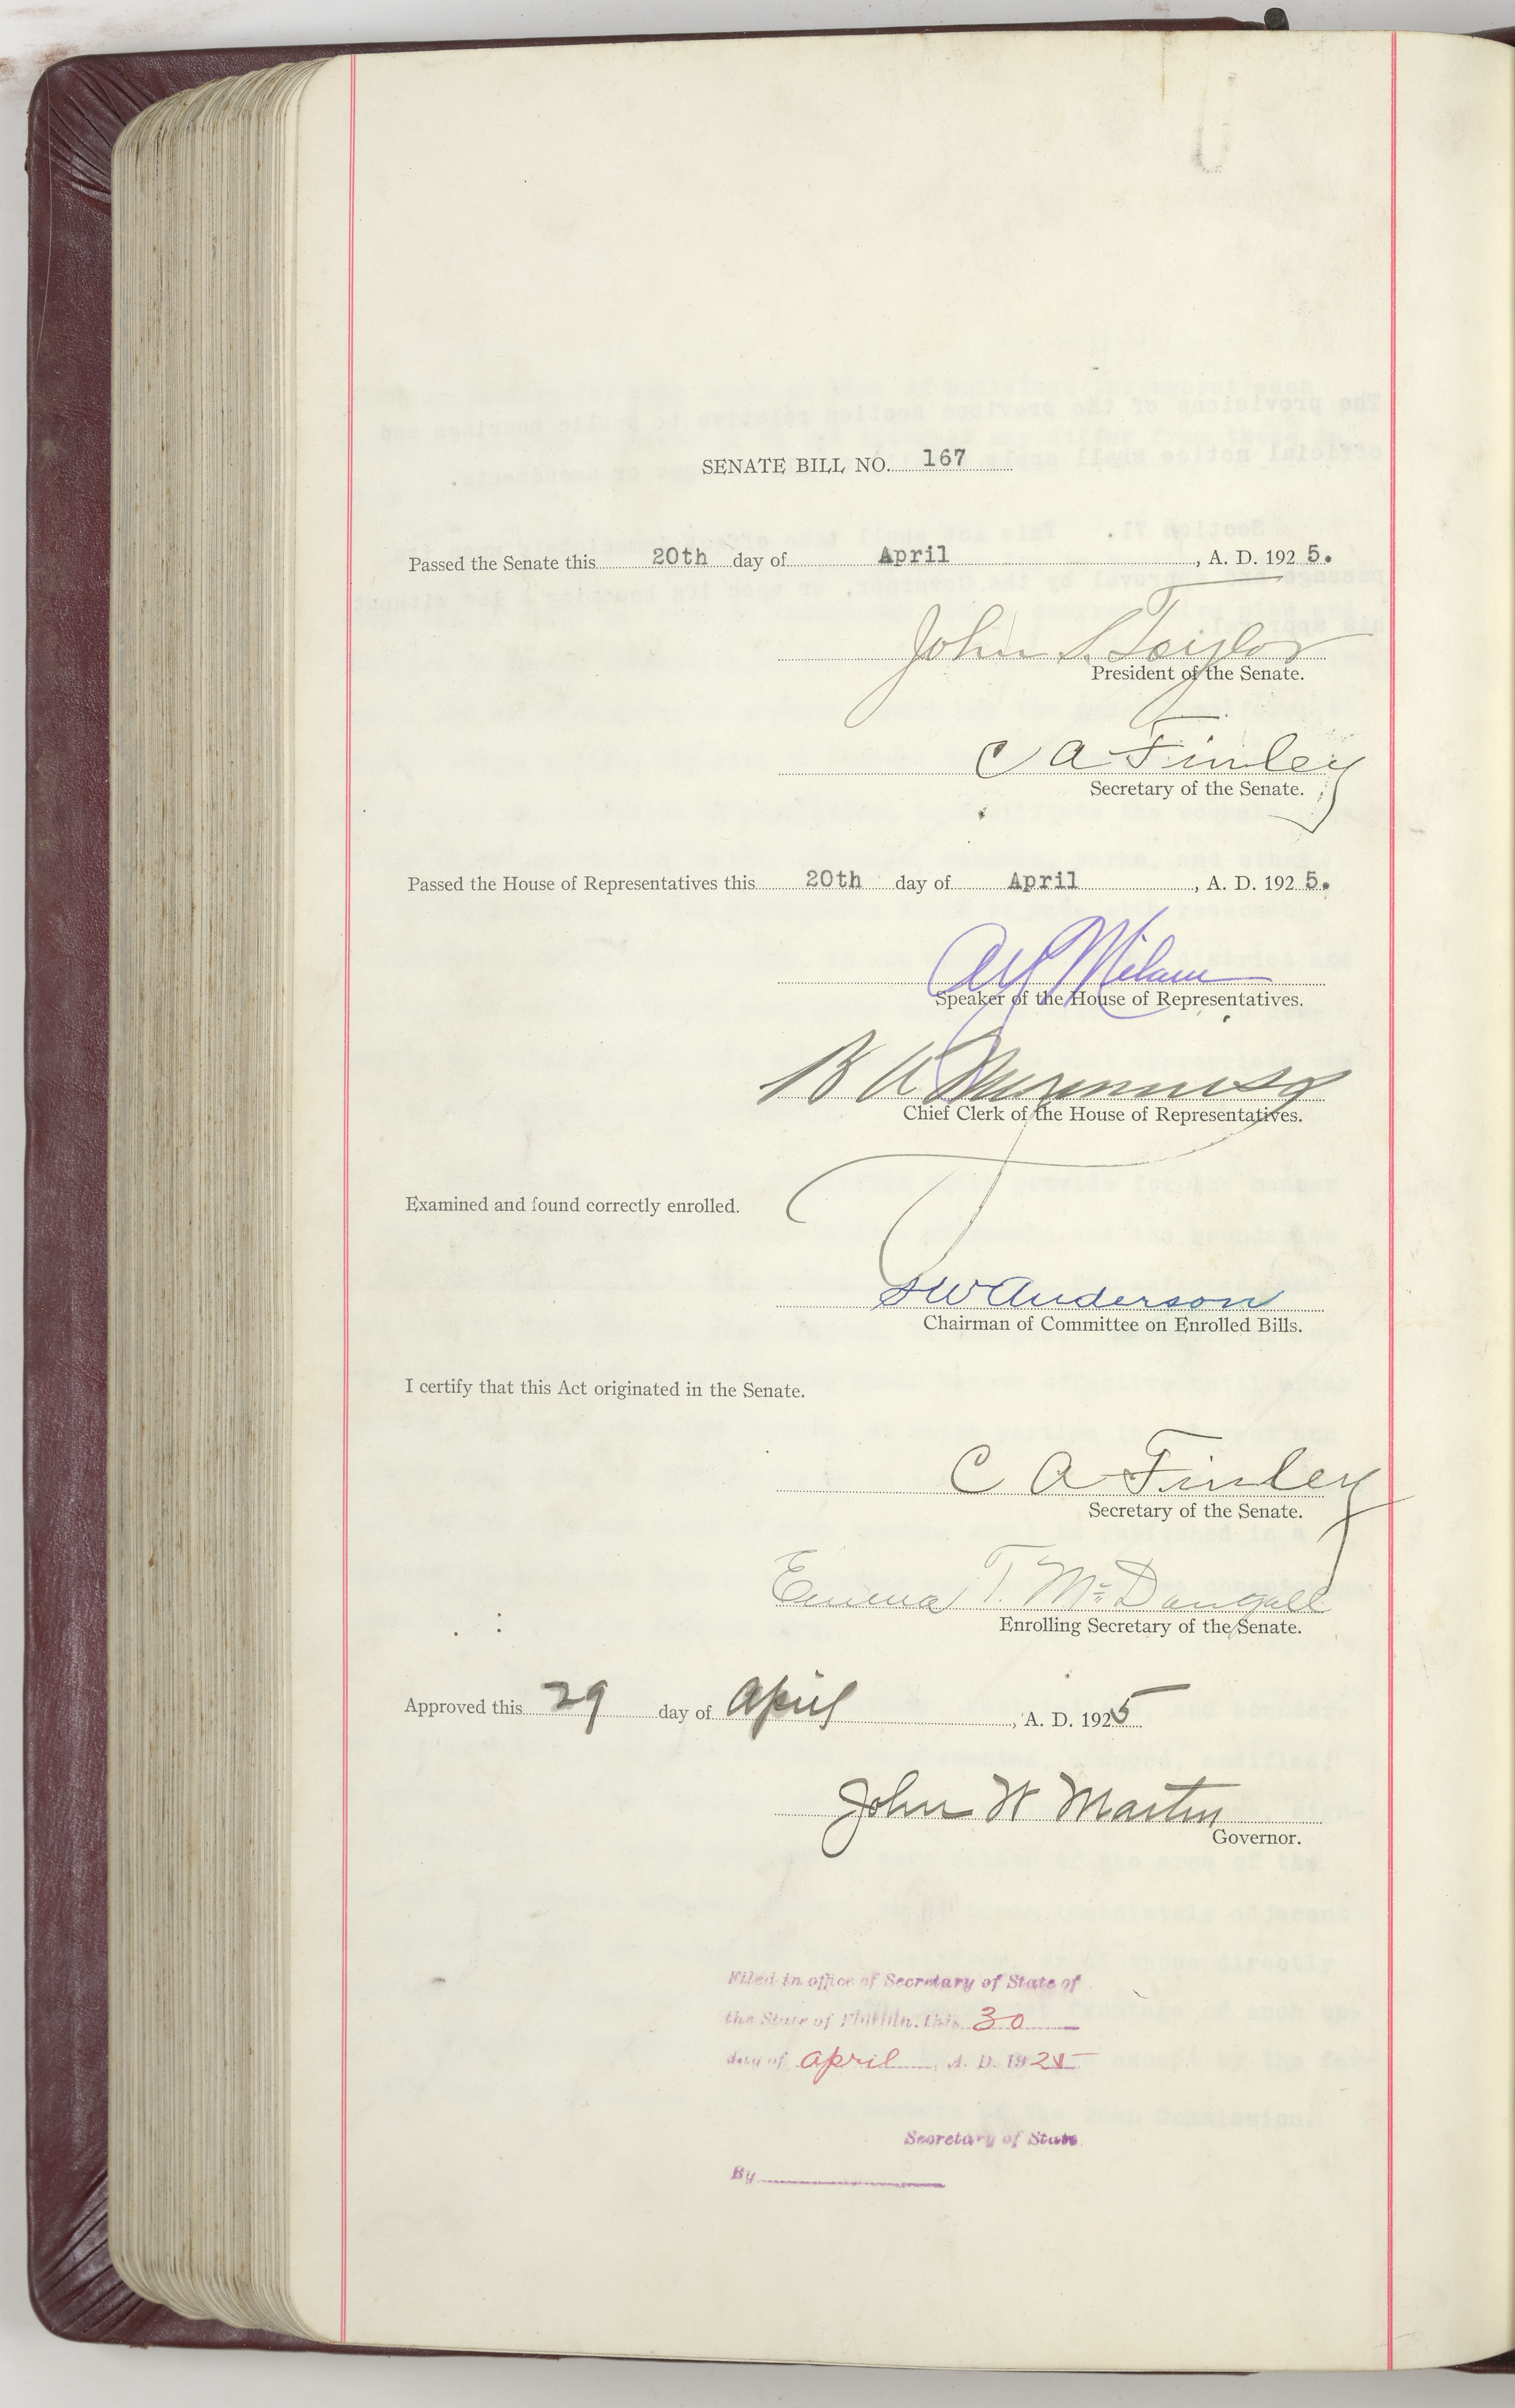 SENATE BILL NO. 167
Passed the Senate this 20th day of April, A. D. 1925.
John S. Taylor
President of the Senate.
C A Finley
Secretary of the Senate.
Passed the House of Representatives this 20th day of April, A. D. 1925.
A Y Milam
Speaker of the House of Representatives.
B A
Chief Clerk of the House of Representatives.
Examined and found correctly enrolled.
S W Anderson
Chairman of Committee on Enrolled Bills.
I certify that this Act originated in the Senate.
C A Finley
Secretary of the Senate.
Emma T. McDougall
Enrolling Secretary of the Senate.
Approved this 29 day of April, A. D. 1925
John W Martin
Governor.
Filed in office of Secretary of State of
the State of Florida, this 30
day of April, A. D. 1925
Secretary of State
By